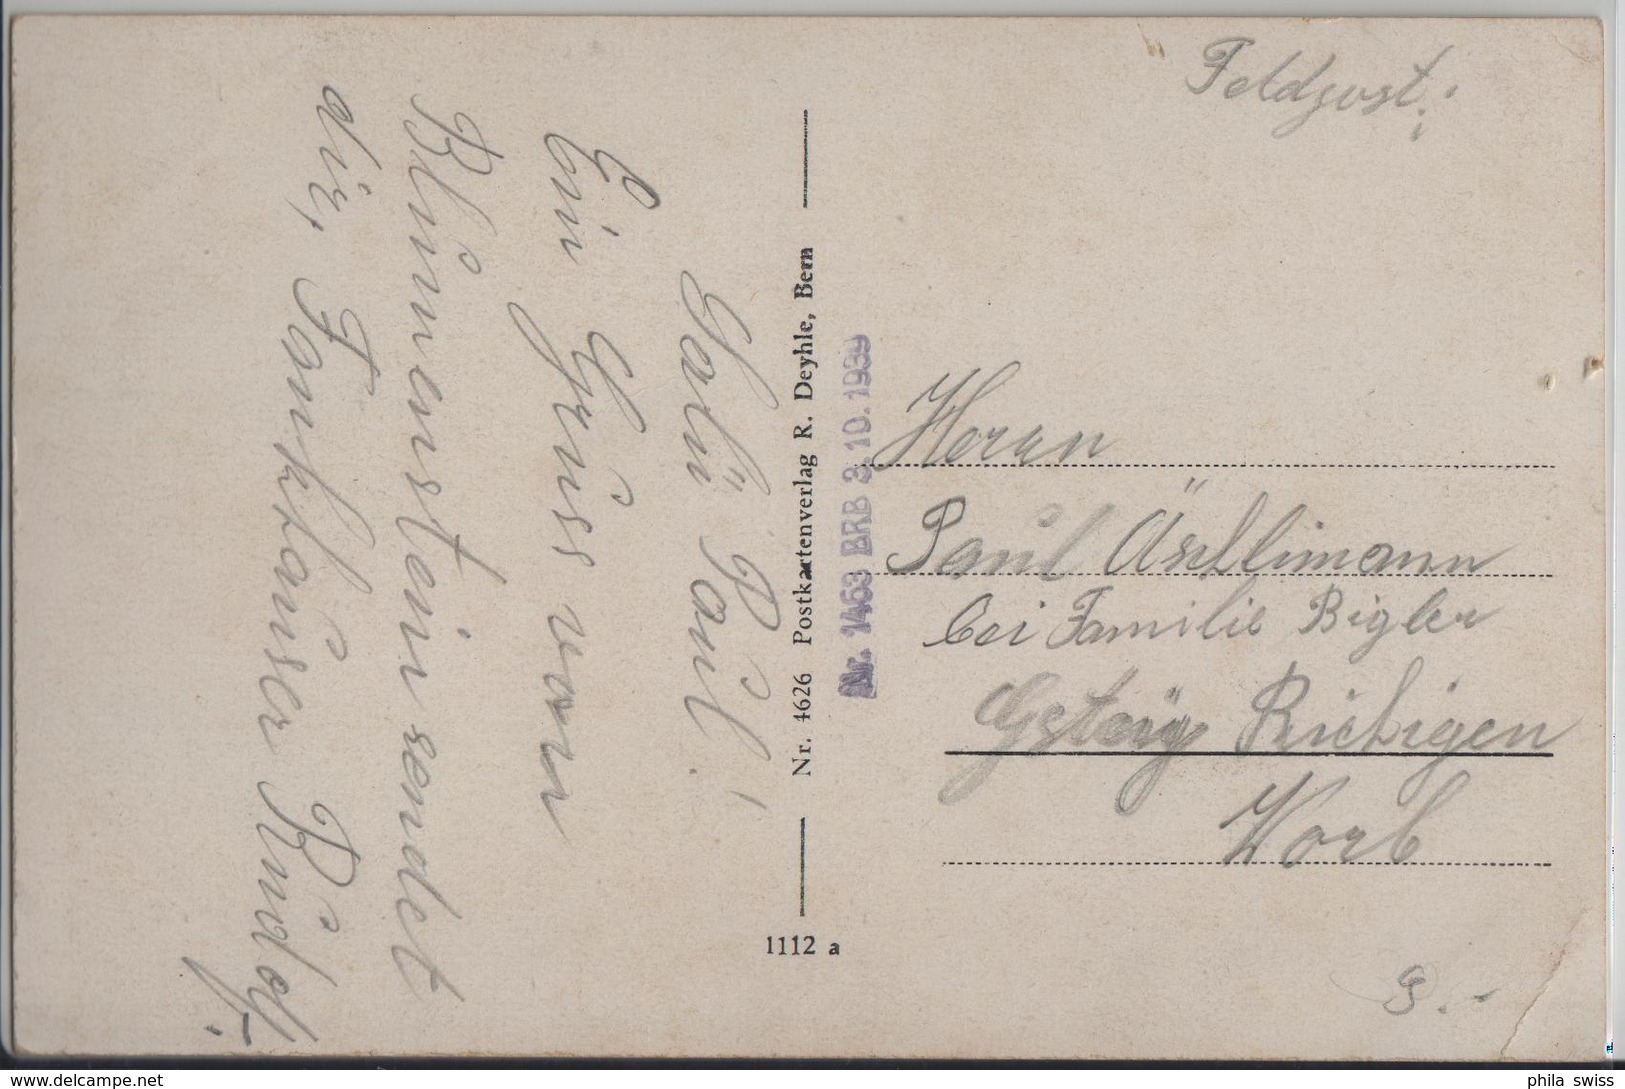 Feldpost.
Salü Paul!
Ein Gruss vom
Blummenstein sendet
dir, Fankhauser Rudolf.
Nr. 4626 Postkartenverlag R. Deyhle, Bern
Nr. 1463 BRB 3. 10. 1939
Herrn
Paul Äschlimann
bei Familie Bigler
Richigen
Worb
1112 a
9.-
www.delcampe.net
phila_swiss